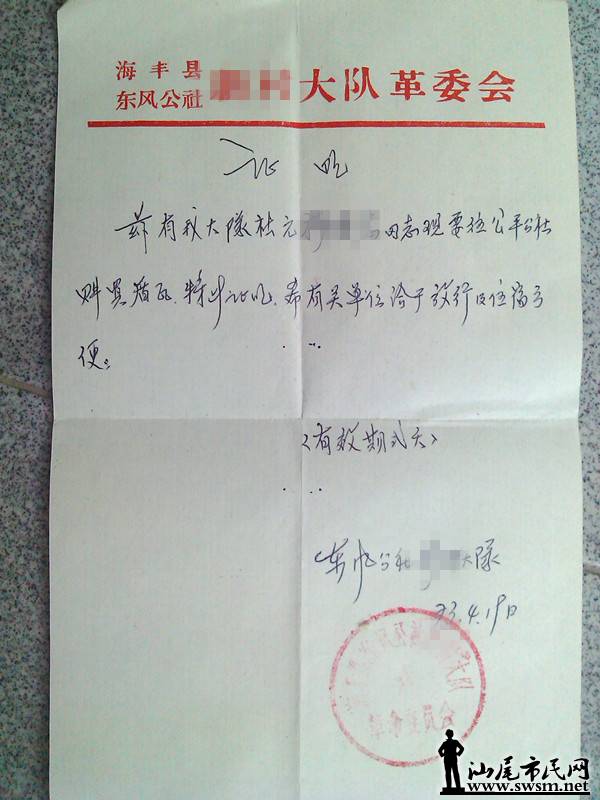 海丰县
东风公社 大队革委会
证明
兹有我大隊社元 同志现要往公平公社
购買猪瓦.特此证明.希有关单位给予放行及住宿方
便。
(有效期弍天)
东风公社 大隊
73.4.19日
汕尾市民网
www.swsm.net